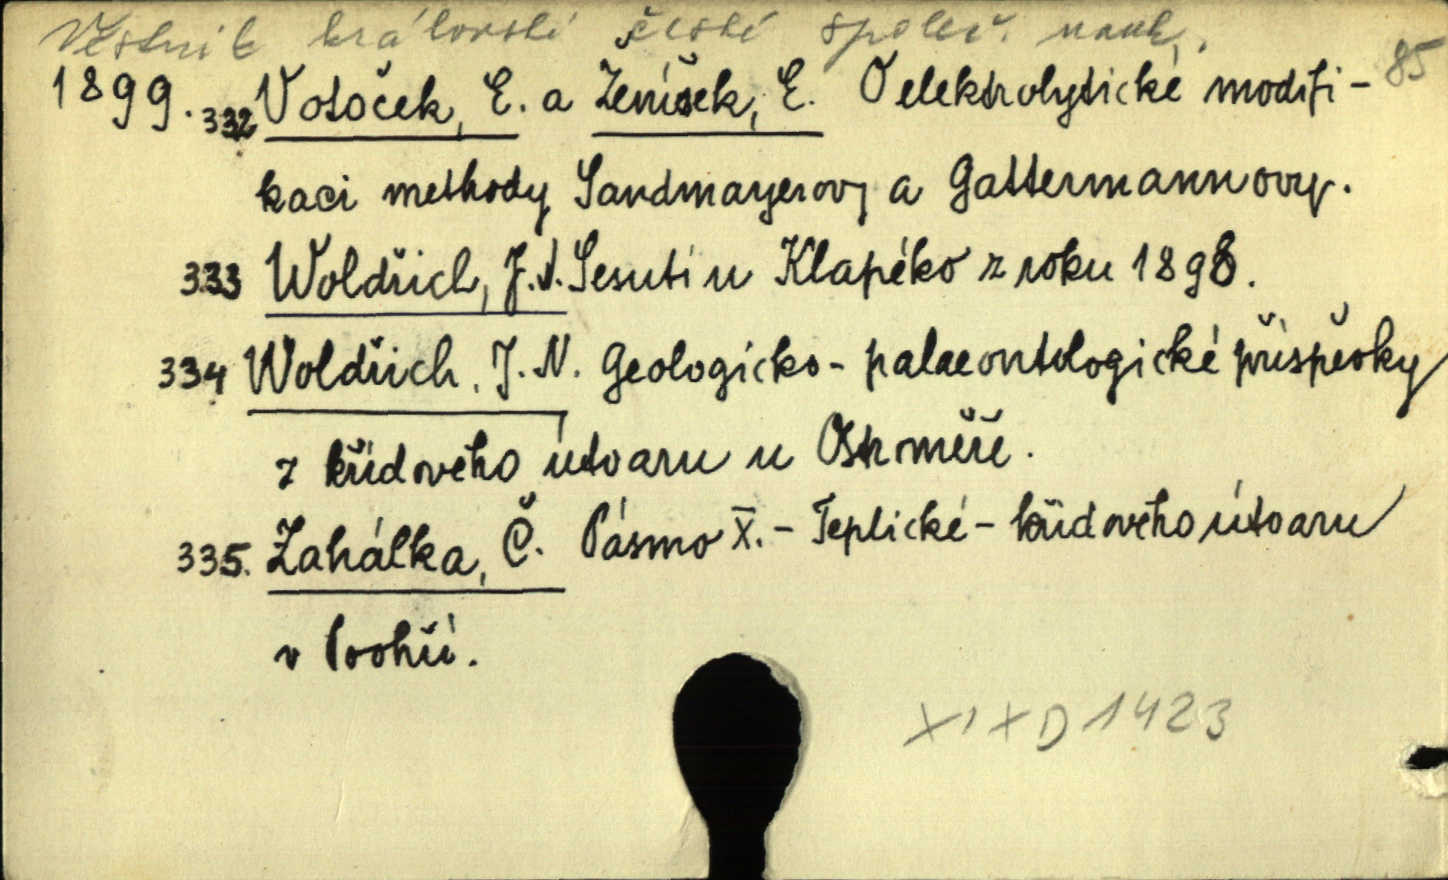 Věstník královské české společ. nauk.
85
1899. 332 Votoček, E. a Ženíšek, E. O elektrolytické modifi-
kaci methody Sandmayerovy a Gattermannovy.
333 Woldřich, J. N. Sesutí u Klapéko z roku 1898.
334 Woldřich, J. N. Geologicko-palaeontologické příspěvky
z křídového útvaru u Ostroměře.
335. Zahálka, Č. Pásmo X. - Teplické - křídového útvaru
v Poohří.
XIX D 1423